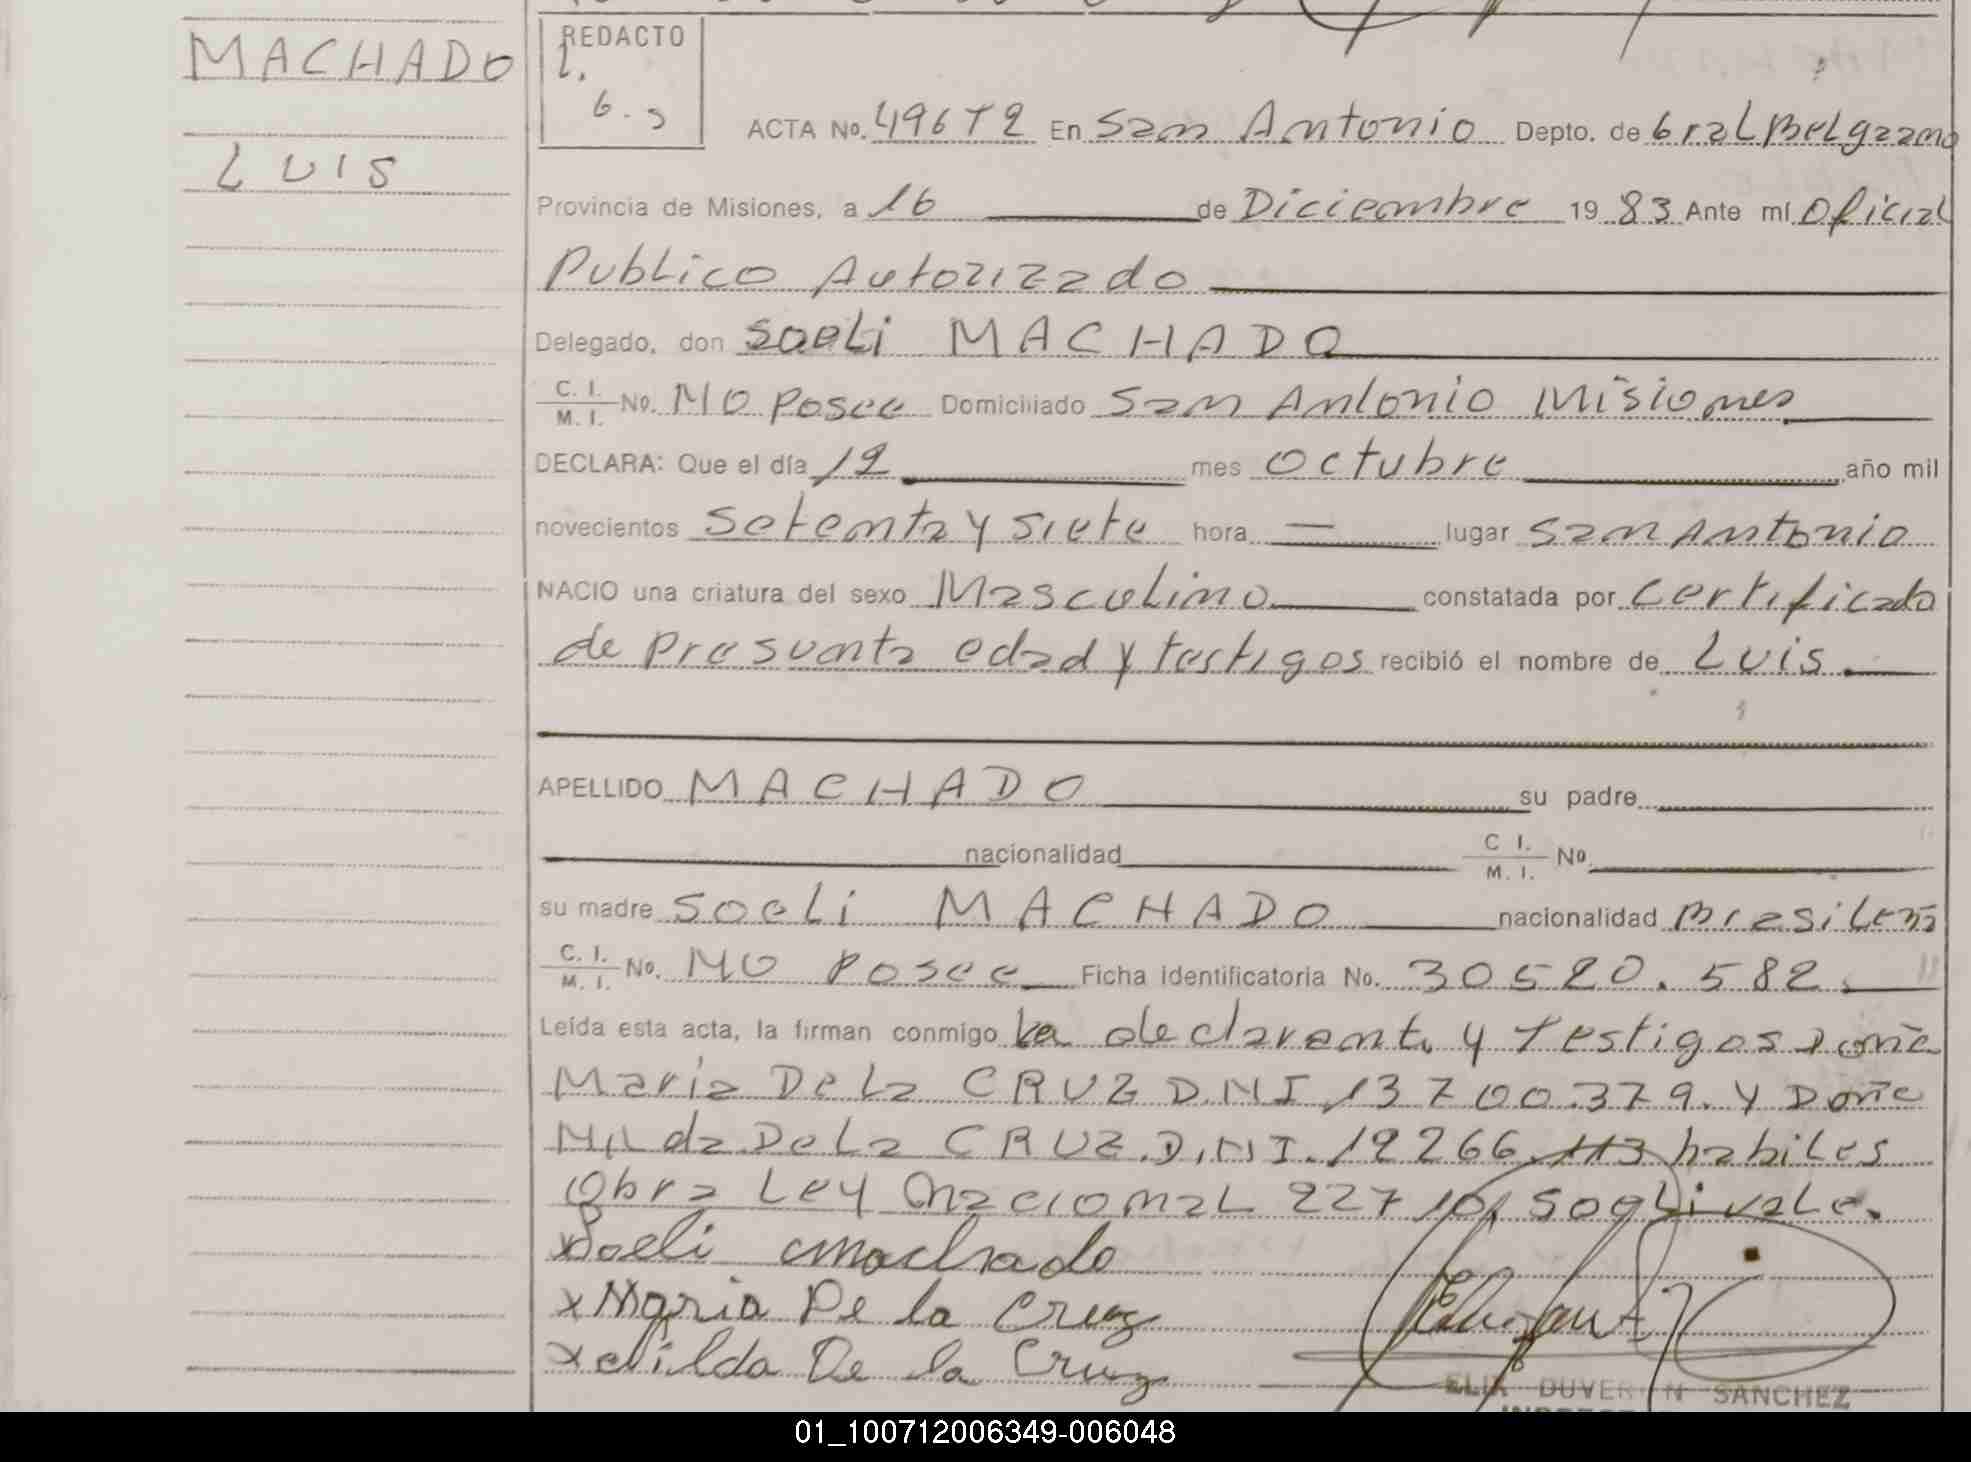 MACHADO
LUIS
REDACTO
ACTA No. 49672 En San Antonio Depto. de Gral Belgrano
Provincia de Misiones, a 16 de Diciembre 19 83 Ante mí Oficial
Publico Autorizado
Delegado, don Soeli MACHADO
C. I. / M. I. No. No Posee Domiciliado San Antonio Misiones
DECLARA: Que el día 12 mes octubre año mil
novecientos setenta y siete hora — lugar San Antonio
NACIO una criatura del sexo Masculino constatada por certificado
de Presunta edad y testigos recibió el nombre de Luis.
APELLIDO MACHADO su padre
nacionalidad C. I. / M. I. No.
su madre Soeli MACHADO nacionalidad Brasileña
C. I. / M. I. No. No Posee Ficha identificatoria No. 30520.582.
Leída esta acta, la firman conmigo La declarante y Testigos Doña
Maria De La CRUZ D.N.I 13700.379. y Doña
Nilda De La CRUZ. D.N.I. 12266.113 habiles
Obra Ley Nacional 22710, Soeli vale.
x Soeli Machado
x Maria De la Cruz
x Nilda De la Cruz
SANCHEZ
01_100712006349-006048